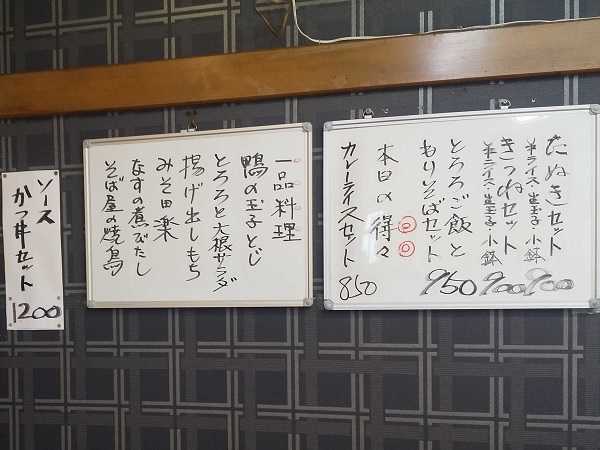 たぬきセット
半ライス・生玉子・小鉢
900
きつねセット
半ライス・生玉子・小鉢
900
とろろご飯と
もりそばセット
950
本日の得々
◎◎
カレーライスセット
850
一品料理
鴨の玉子とじ
とろろと大根サラダ
揚げ出しもち
みそ田楽
なすの煮びたし
そば屋の焼鳥
ソース
かつ丼セット
1200